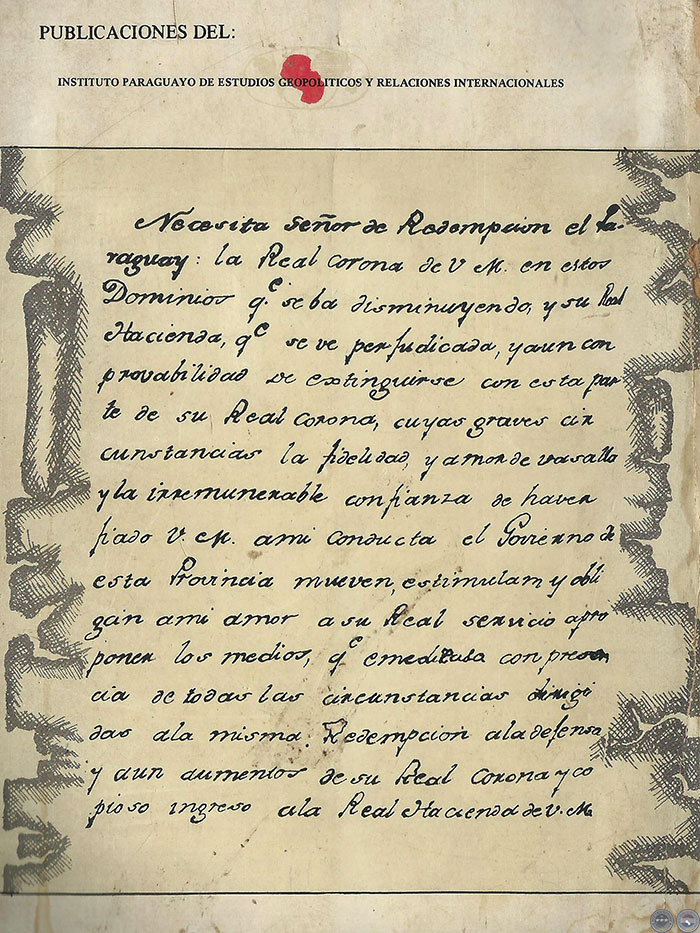 PUBLICACIONES DEL:
INSTITUTO PARAGUAYO DE ESTUDIOS GEOPOLITICOS Y RELACIONES INTERNACIONALES
Necesita Señor de Redempcion el Pa-
raguay: la Real Corona de V. M. en estos
Dominios q.e se ba disminuyendo, y su Real
Hacienda, q.e se ve perjudicada, y aun con
provabilidad de extinguirse con esta par
te de su Real Corona, cuyas graves cir
cunstancias la fidelidad, y amor de vasallo
y la irremunerable confianza de haver
fiado V. M. ami conducta el Govierno de
esta Provincia mueven, estimulam y obli
gan ami amor a su Real servicio apro
poner los medios, q.e emeditado con presen
cia de todas las circunstancias dirigi
das ala misma Redempcion ala defensa
y aun aumentos de su Real Corona y co
pioso ingreso ala Real Hacienda de V. M